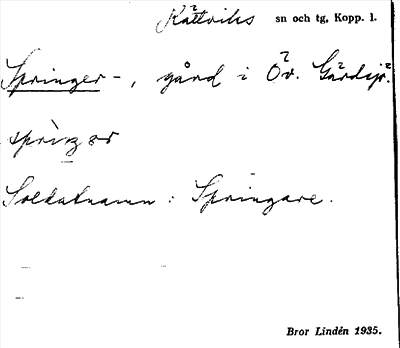 Rättviks sn och tg, Kopp. l.
Springer-, gård i Öv. Gärdsjö.
sprìŋər
Soldatnamn: Springare.
Bror Lindén 1935.